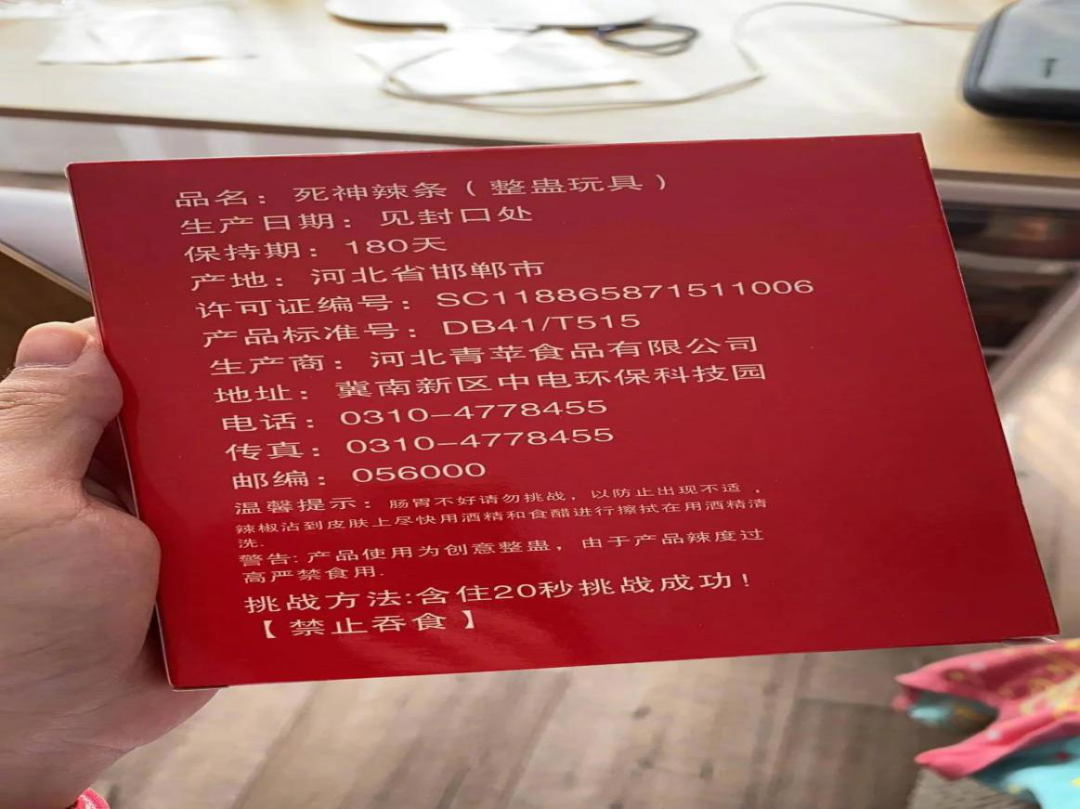 品名：死神辣条（整蛊玩具）
生产日期：见封口处
保持期：180天
产地：河北省邯郸市
许可证编号：SC118865871511006
产品标准号：DB41/T515
生产商：河北青苹食品有限公司
地址：冀南新区中电环保科技园
电话：0310-4778455
传真：0310-4778455
邮编：056000
温馨提示：肠胃不好请勿挑战，以防止出现不适，
辣椒沾到皮肤上尽快用酒精和食醋进行擦拭在用酒精清
洗.
警告:产品使用为创意整蛊，由于产品辣度过
高严禁食用.
挑战方法:含住20秒挑战成功！
【禁止吞食】